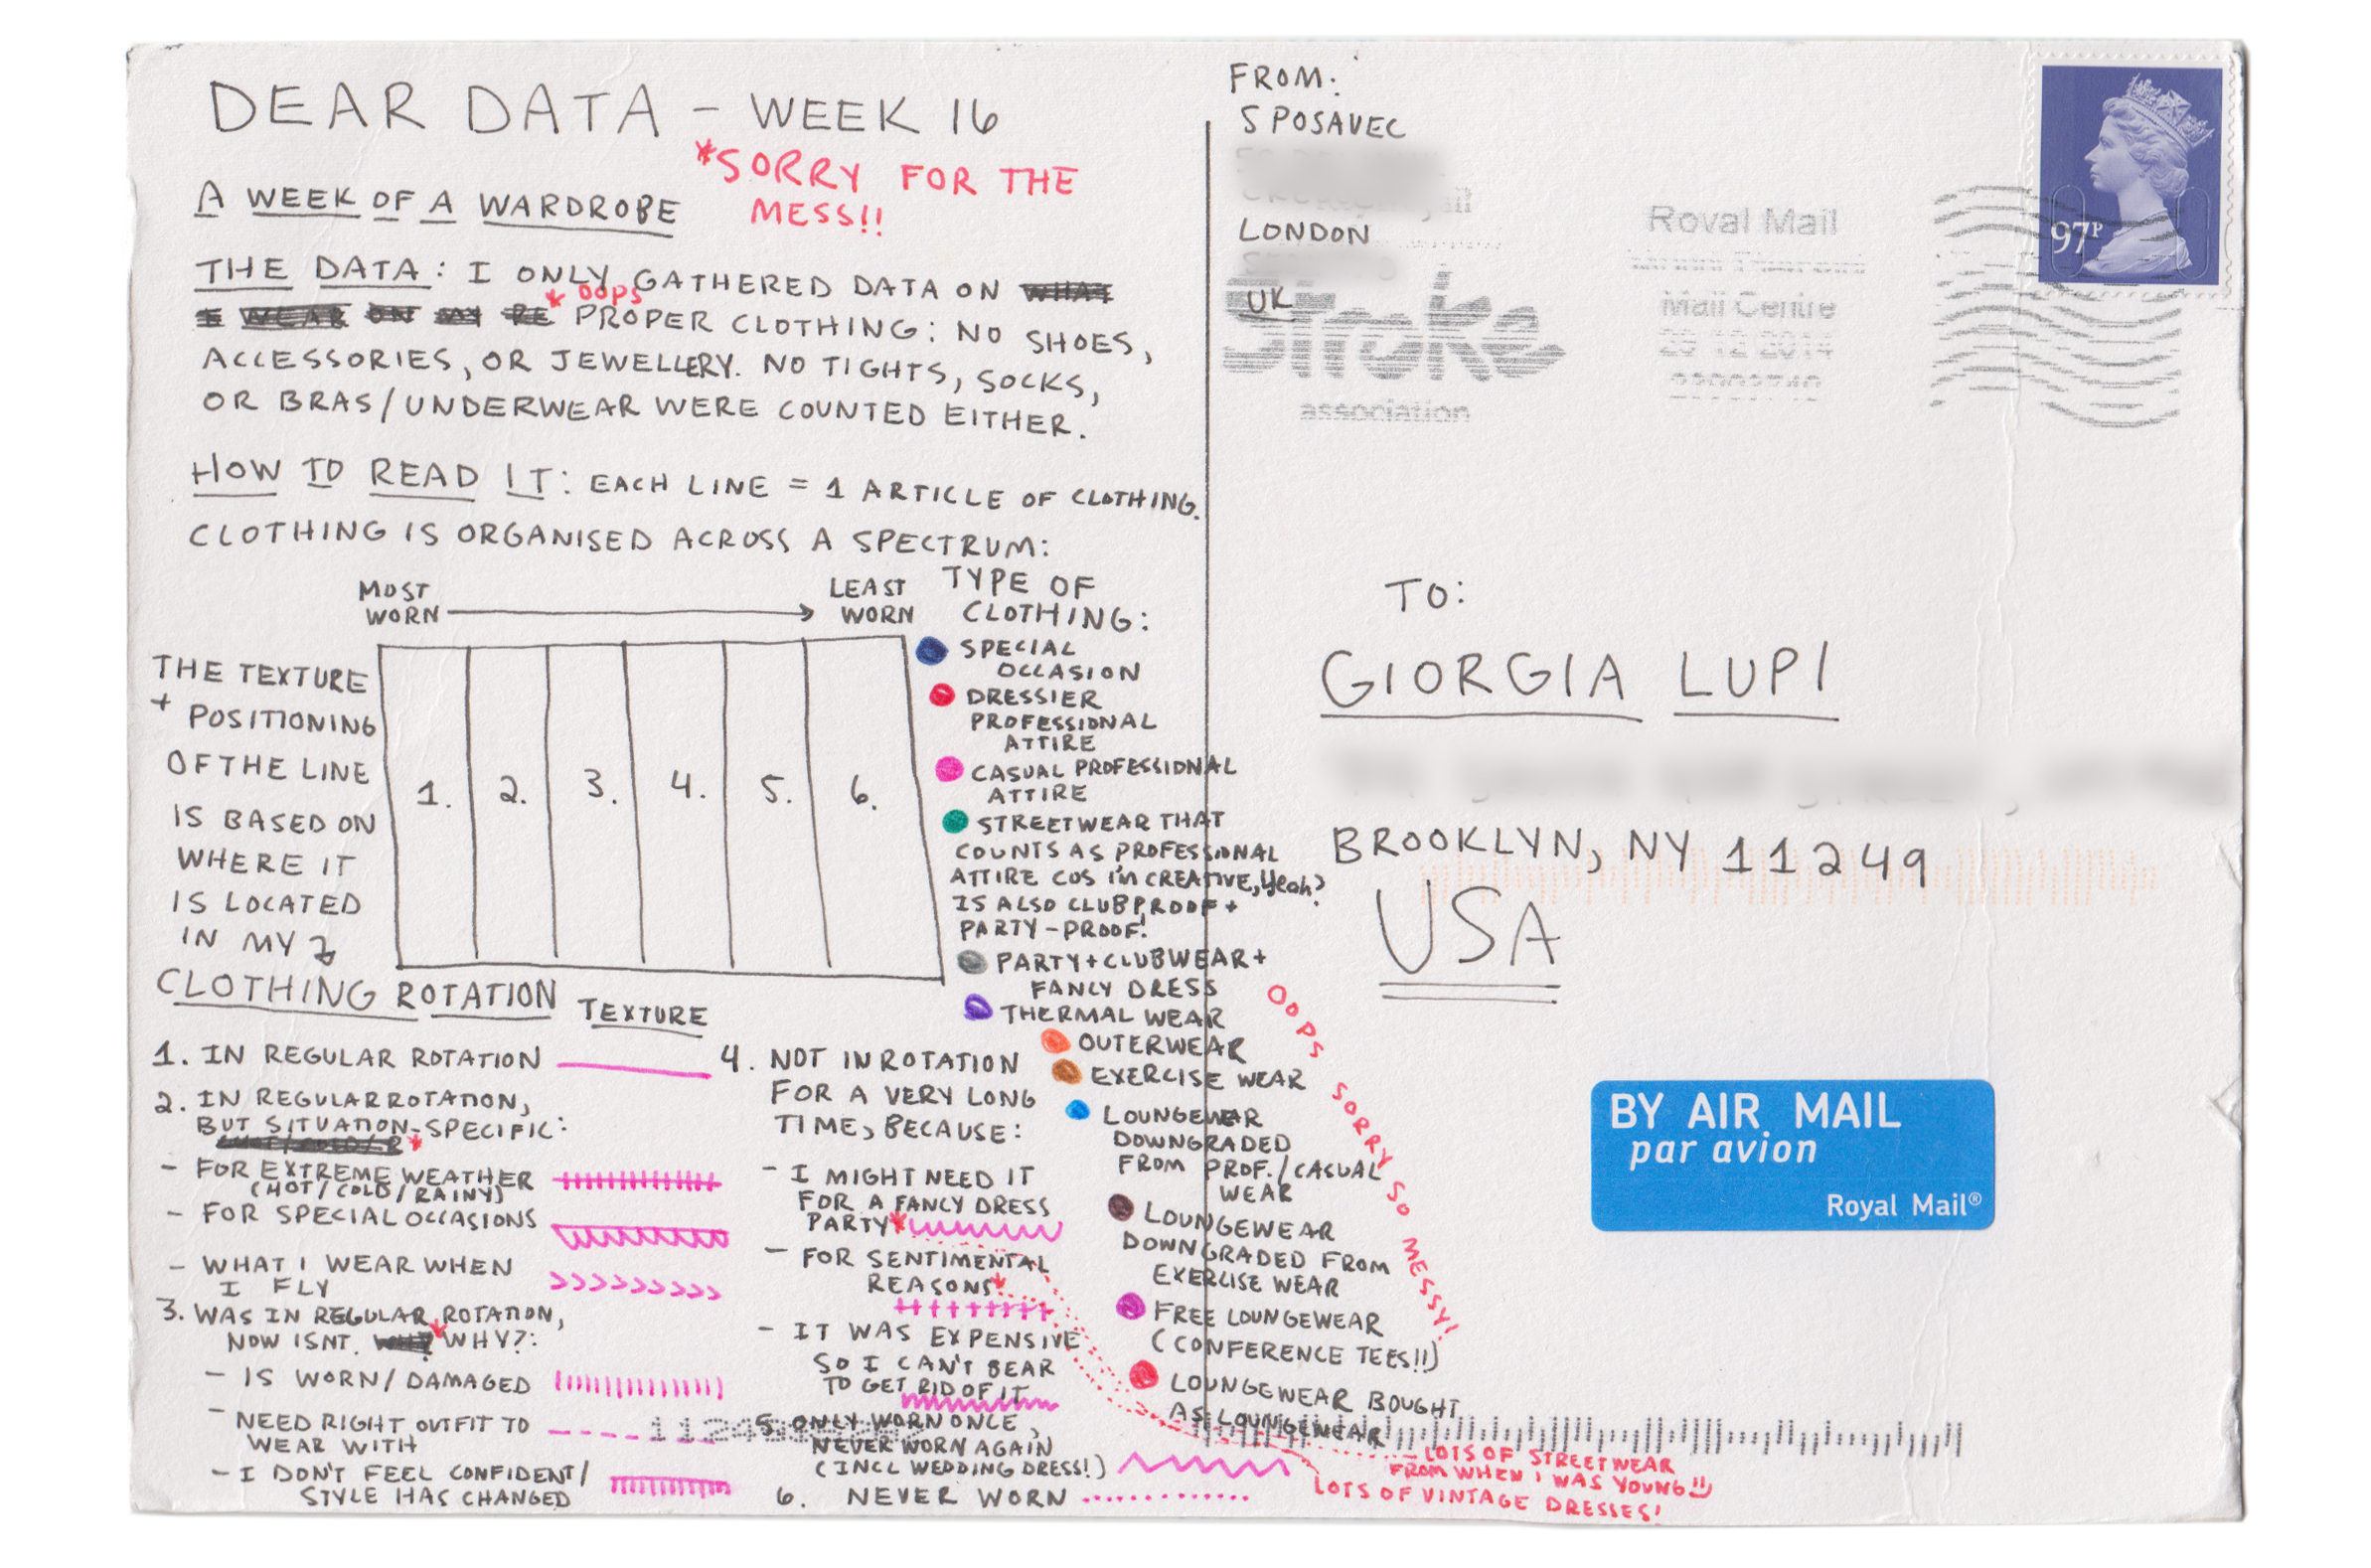 DEAR DATA - WEEK 16
*SORRY FOR THE
MESS!!
A WEEK OF A WARDROBE
THE DATA: I ONLY GATHERED DATA ON
* OOPS
PROPER CLOTHING: NO SHOES,
ACCESSORIES, OR JEWELLERY. NO TIGHTS, SOCKS,
OR BRAS/UNDERWEAR WERE COUNTED EITHER.
HOW TO READ IT: EACH LINE = 1 ARTICLE OF CLOTHING.
CLOTHING IS ORGANISED ACROSS A SPECTRUM:
MOST
WORN
LEAST
WORN
THE TEXTURE
+ POSITIONING
OF THE LINE
IS BASED ON
WHERE IT
IS LOCATED
IN MY
CLOTHING ROTATION
1.
2.
3.
4.
5.
6.
TYPE OF
CLOTHING:
SPECIAL
OCCASION
DRESSIER
PROFESSIONAL
ATTIRE
CASUAL PROFESSIONAL
ATTIRE
STREETWEAR THAT
COUNTS AS PROFESSIONAL
ATTIRE COS I'M CREATIVE, yeah?
IS ALSO CLUBPROOF +
PARTY-PROOF!
PARTY+CLUBWEAR+
FANCY DRESS
THERMAL WEAR
OUTERWEAR
EXERCISE WEAR
LOUNGEWEAR
DOWNGRADED
FROM PROF./CASUAL
WEAR
LOUNGEWEAR
DOWNGRADED FROM
EXERCISE WEAR
FREE LOUNGEWEAR
(CONFERENCE TEES!!)
LOUNGEWEAR BOUGHT
AS LOUNGEWEAR
OOPS SORRY SO MESSY!
TEXTURE
1. IN REGULAR ROTATION
2. IN REGULAR ROTATION,
BUT SITUATION-SPECIFIC:
*
- FOR EXTREME WEATHER
(HOT/COLD/RAINY)
- FOR SPECIAL OCCASIONS
- WHAT I WEAR WHEN
I FLY
3. WAS IN REGULAR ROTATION,
NOW ISNT. * WHY?:
- IS WORN/DAMAGED
- NEED RIGHT OUTFIT TO
WEAR WITH
- I DON'T FEEL CONFIDENT/
STYLE HAS CHANGED
4. NOT IN ROTATION
FOR A VERY LONG
TIME, BECAUSE:
- I MIGHT NEED IT
FOR A FANCY DRESS
PARTY*
- FOR SENTIMENTAL
REASONS*
- IT WAS EXPENSIVE
SO I CAN'T BEAR
TO GET RID OF IT
5. ONLY WORN ONCE,
NEVER WORN AGAIN
(INCL WEDDING DRESS!)
6. NEVER WORN
LOTS OF STREETWEAR
FROM WHEN I WAS YOUNG!!
LOTS OF VINTAGE DRESSES!
FROM:
S POSAVEC
LONDON
UK
Stroke
association
Royal Mail
Mail Centre
97P
TO:
GIORGIA LUPI
BROOKLYN, NY 11249
USA
BY AIR MAIL
par avion
Royal Mail®